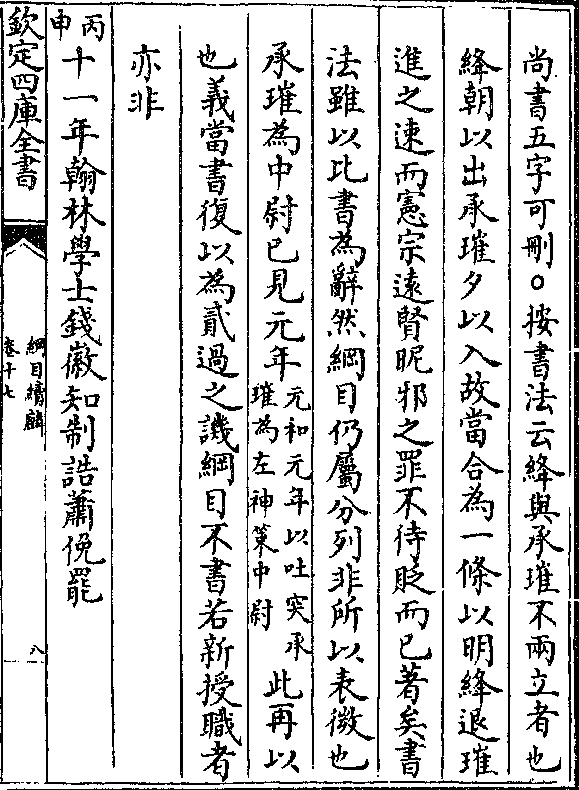 尚書五字可刪○按書法云絳與承璀不兩立者也
絳朝以出承璀夕以入故當合為一條以明絳退璀
進之速而憲宗遠賢昵邪之罪不待貶而已著矣書
法雖以比書為辭然綱目仍屬分列非所以表微也
承璀為中尉已見元年元和元年以吐突承璀為左神策中尉此再以
也義當書復以為貳過之譏綱目不書若新授職者
亦非
丙申十一年翰林學士錢徽知制誥蕭俛罷
欽定四庫全書
綱目續麟
卷十七
八